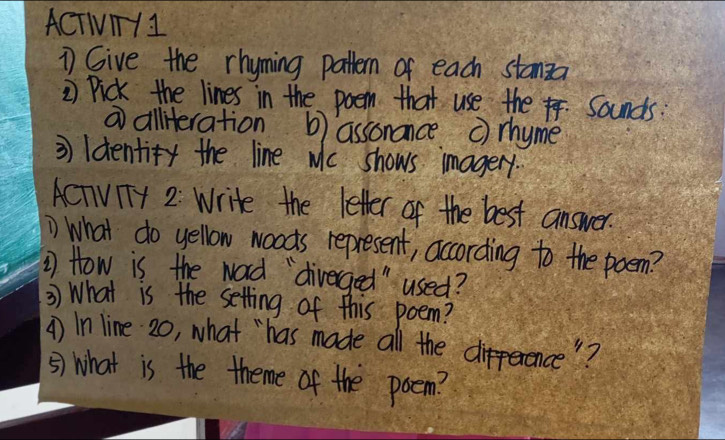 ACTIVITY 1
1) Give the rhyming pattern of each stanza
2) Pick the lines in the poem that use the ff. sounds:
a) alliteration b) assonance c) rhyme
3) Identify the line w/c shows imagery.
ACTIVITY 2: Write the letter of the best answer.
1) What do yellow woods represent, according to the poem?
2) How is the word "diverged" used?
3) What is the setting of this poem?
4) In line 20, what "has made all the difference"?
5) What is the theme of the poem?